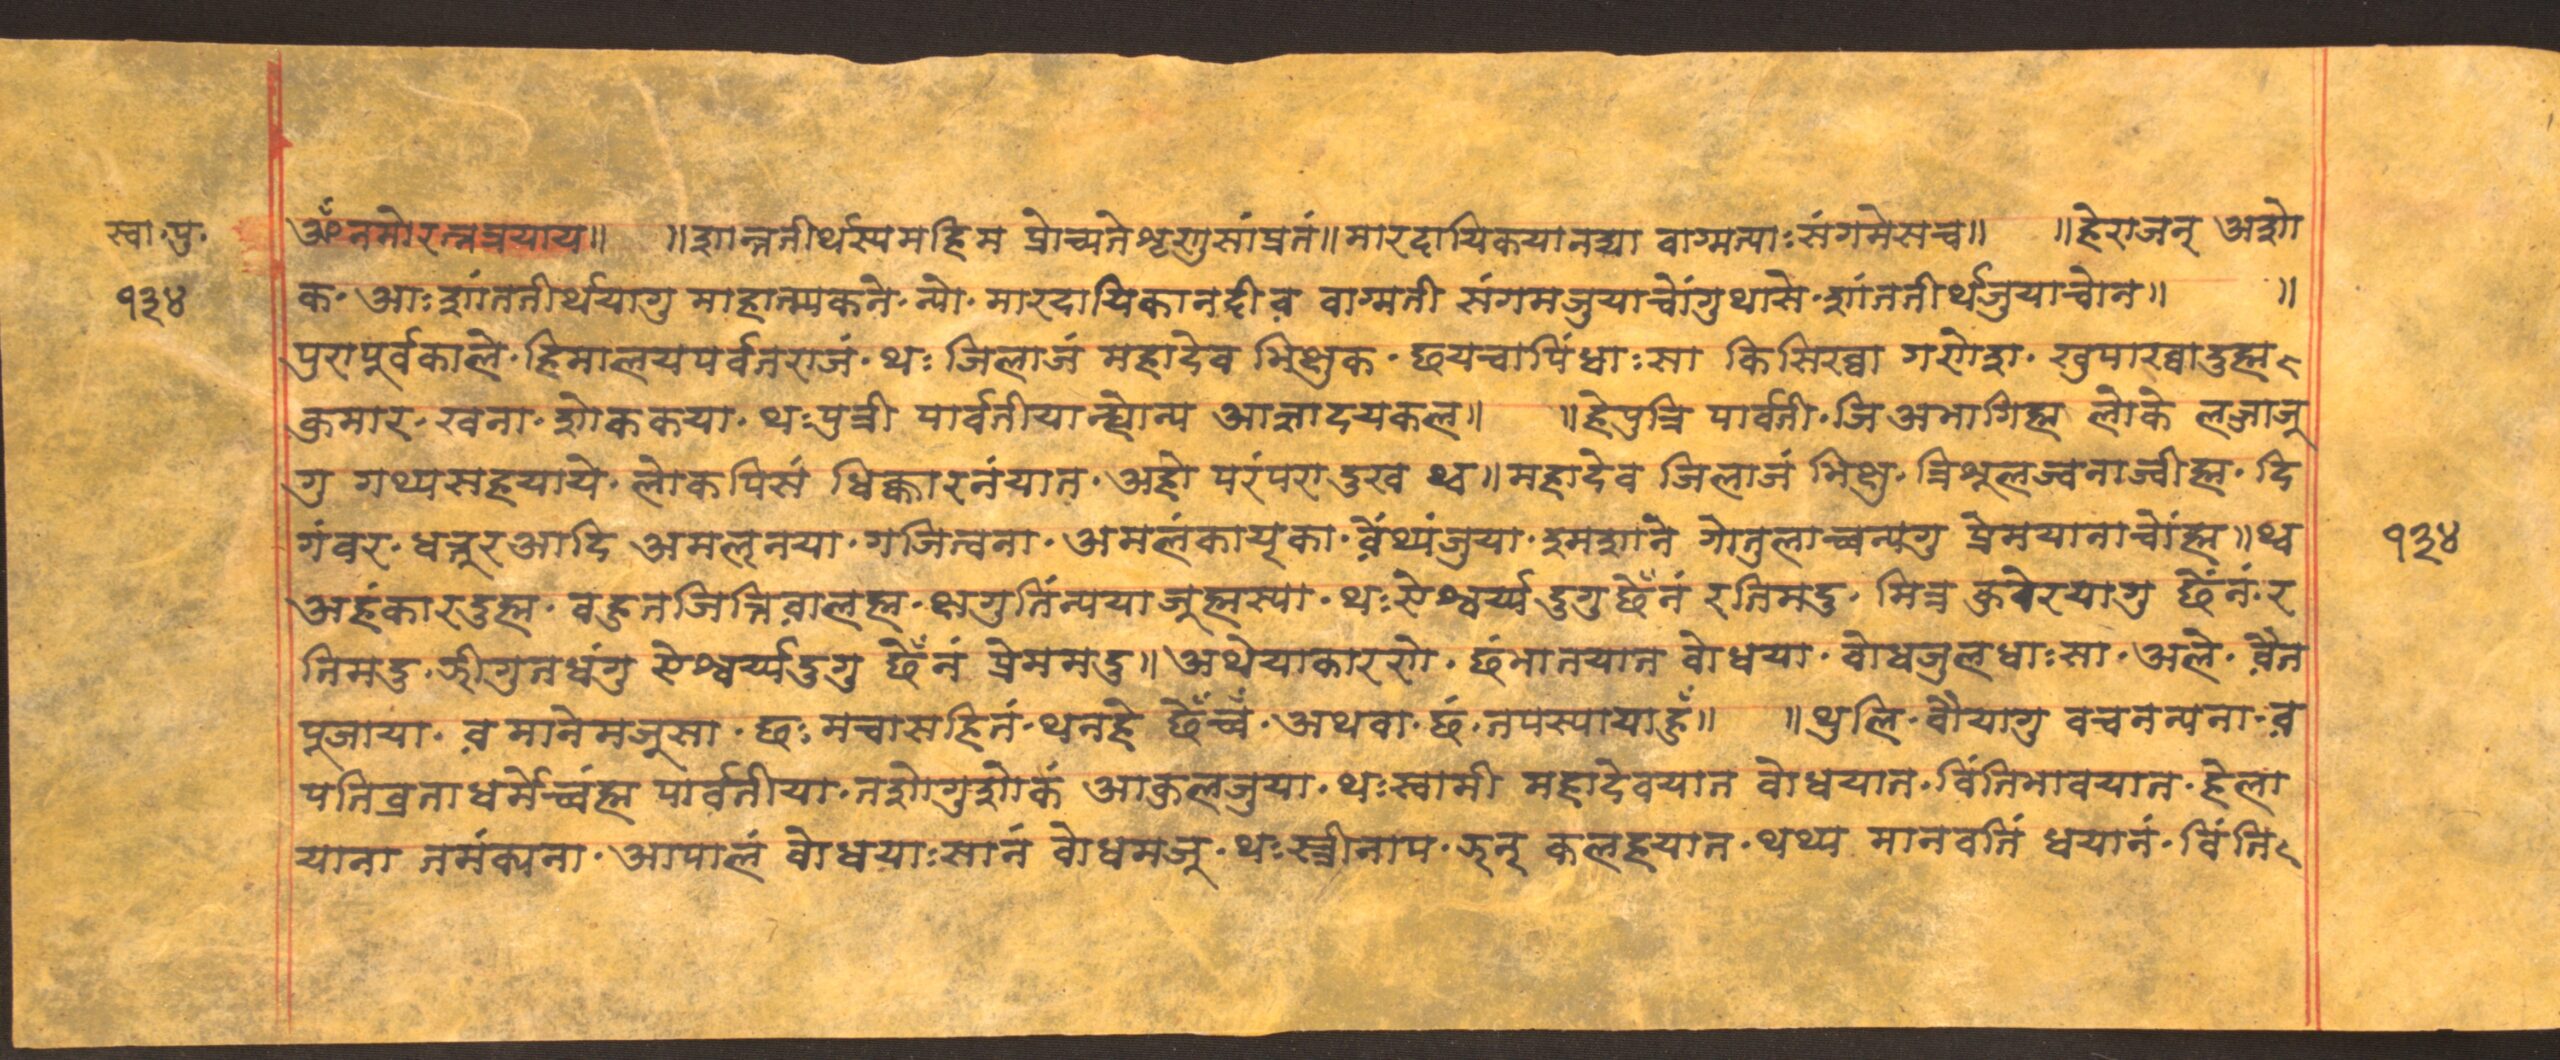 स्वा॰पु॰
१३४
ॐ नमो रत्नत्रयाय॥ ॥शान्ततीर्थस्य महिम प्रोच्यते शृणु सांप्रतं॥ मारदायिकया नद्या वाग्मत्याः संगमे सच॥ ॥हे राजन् अशो
क॰ आः शांततीर्थयागु माहात्म्य कने॰ न्यो॰ मारदायिका नदी व़ वाग्मती संगम जुया चोंगु थासे॰ शांततीर्थ जुया चोन॥ ॥
पुरा पूर्वकाले॰ हिमालय पर्वतराजं॰ थः जिलाजं महादेव भिक्षुक॰ छय चा पिं धाः सा किसिख्वा गणेश॰ खुपा ख्वा दुह्म
कुमार॰ खना॰ शोक कया॰ थः पुत्री पार्वतीयान्ह्योन्य आज्ञा दयकल॥ ॥हे पुत्रि पार्वती॰ जि अभागिह्म लोके लज्जा जू
गु गथ्य सह याये॰ लोकपिसं धिक्कारनं यात॰ अहो परंपरा दुख थ्व॥ महादेव जिलाजं भिक्षु॰ त्रिशूल ज्वना ज्वीह्म॰ दि
गंवर॰ धत्तुर आदि अमल् नया॰ गजि त्वना॰ अमलं काय्का॰ व़ेंथ्यं जुया॰ श्मशाने गोतुला च्वन्यगु प्रेम याना चोंह्म॥ थ्व
अहंकार दुह्म॰ वहुत जि त्रिव़ालह्म॰ क्षगुतिं न्यया जूह्मस्या॰ थः ऐश्वर्य्य दुगु छेँनं रति मदु॰ मित्र कुवेरयागु छेंनं॰ र
ति मदु॰ जीगु नध्वंगु ऐश्वर्य्य दुगु छेँनं प्रेम मदु॥ अथेया कारणे॰ छं भातयात वोध या॰ वोध जुल धाः सा॰ अले॰ व़ैत
पूजा या॰ व़ माने मजुसा॰ छः मचा सहितं॰ थन हे छेँ च्वँ॰ अथवा॰ छं॰ तपस्या या हुँ॥ ॥थुलि॰ वौयागु वचन न्यना॰ व़
पतिव्रता धर्मे च्वंह्म पार्वतीया॰ तशोगु शोकं आकुल जुया॰ थः स्वामी महादेवयात वोध यात॰ विंतिभाव यात॰ हेला
याना नमं क्यना॰ आपालं वोध याः सानं वोध मजू॰ थः स्त्री नाप॰ झन् कलह यात॰ थथ्य मानवतिं धयानं॰ विंति
१३४